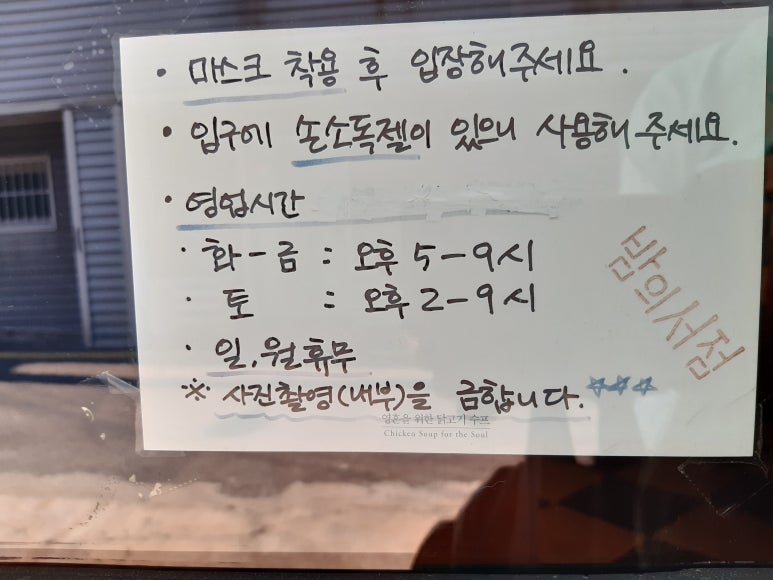 · 마스크 착용 후 입장해주세요.
· 입구에 손소독젤이 있으니 사용해 주세요.
· 영업시간
· 화-금 : 오후 5-9시
· 토 : 오후 2-9시
· 일, 월 휴무
※ 사진촬영(내부)을 금합니다.☆☆☆
밤의서점
영혼을 위한 닭고기 수프
Chicken Soup for the Soul